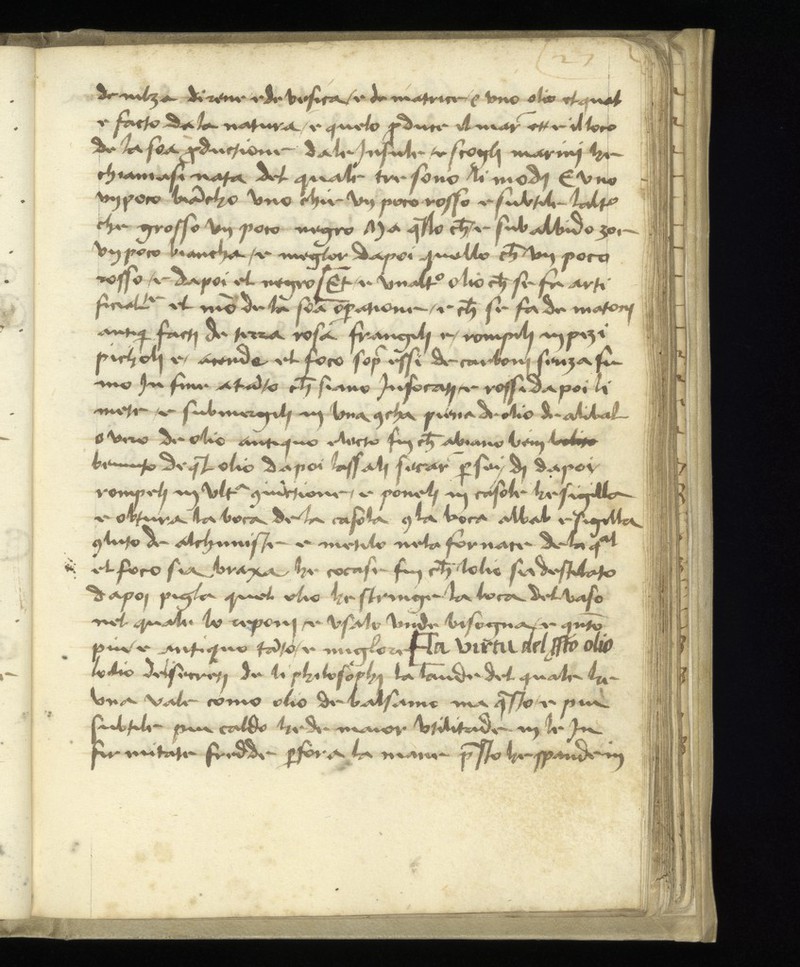 27
de milza di rene e de vesica / e de matrice / e uno olio el qual
e facto da la natura / e questo ꝓduce il mar̄ et e il loco
de la soa ꝓductione da le Insule / e scogli marini he
chiamasi nata del quale tre sono li modi E uno
un poco biācho uno chi e un poco rosso e subtile laltº
che grosso un poco negro Ma q̄sto ch̄ e sub albido zoe
un poco biancho / e meglor dapoi quello ch̄ un poco
rosso / e dapoi el negro Et e unaltº olio ch̄ se fa arti
ficial el mō de la soa oꝑatione / e ch̄ se fa de matoni
antiqi facti de terra rosa frangili e / rompili in pezi
picholi e / acende el foco sop̄ essi de carboni senza fu
mo In fine a tāto ch̄ siano Infocati / e rossi dapoi li
mete / e submergili in una ꝯcha piena de olio de
o vero de olio antiquo electo fin ch̄ abiano ben
beuuto de q̄l olio dapoi lassali sicar̄ ꝑ sei di dapoi
rompeli in / e poneli in casole he sigilla
e obtura la boca de la casola ꝯ la boca e sigilla
ꝯ luto de alchimisti e metilo nela fornace de la q̄l
el foco sia braxa he cocase fin ch̄ lolio sia destilato
dapoi pigla quel olio he stringe la boca del vaso
nel quale lo reponi / e usalo unde bisogna / e q̄nto
piu e antiquo tāto / e miglore La virtu del p̄sto olio
lolio del secreti de li philosophi la laude del quale he
una vale como olio de balsamo ma q̄sto / e piu
subtile piu caldo he de maior utilitade in le In
firmitate fredde ꝑfora la mane p̄sto he spande in